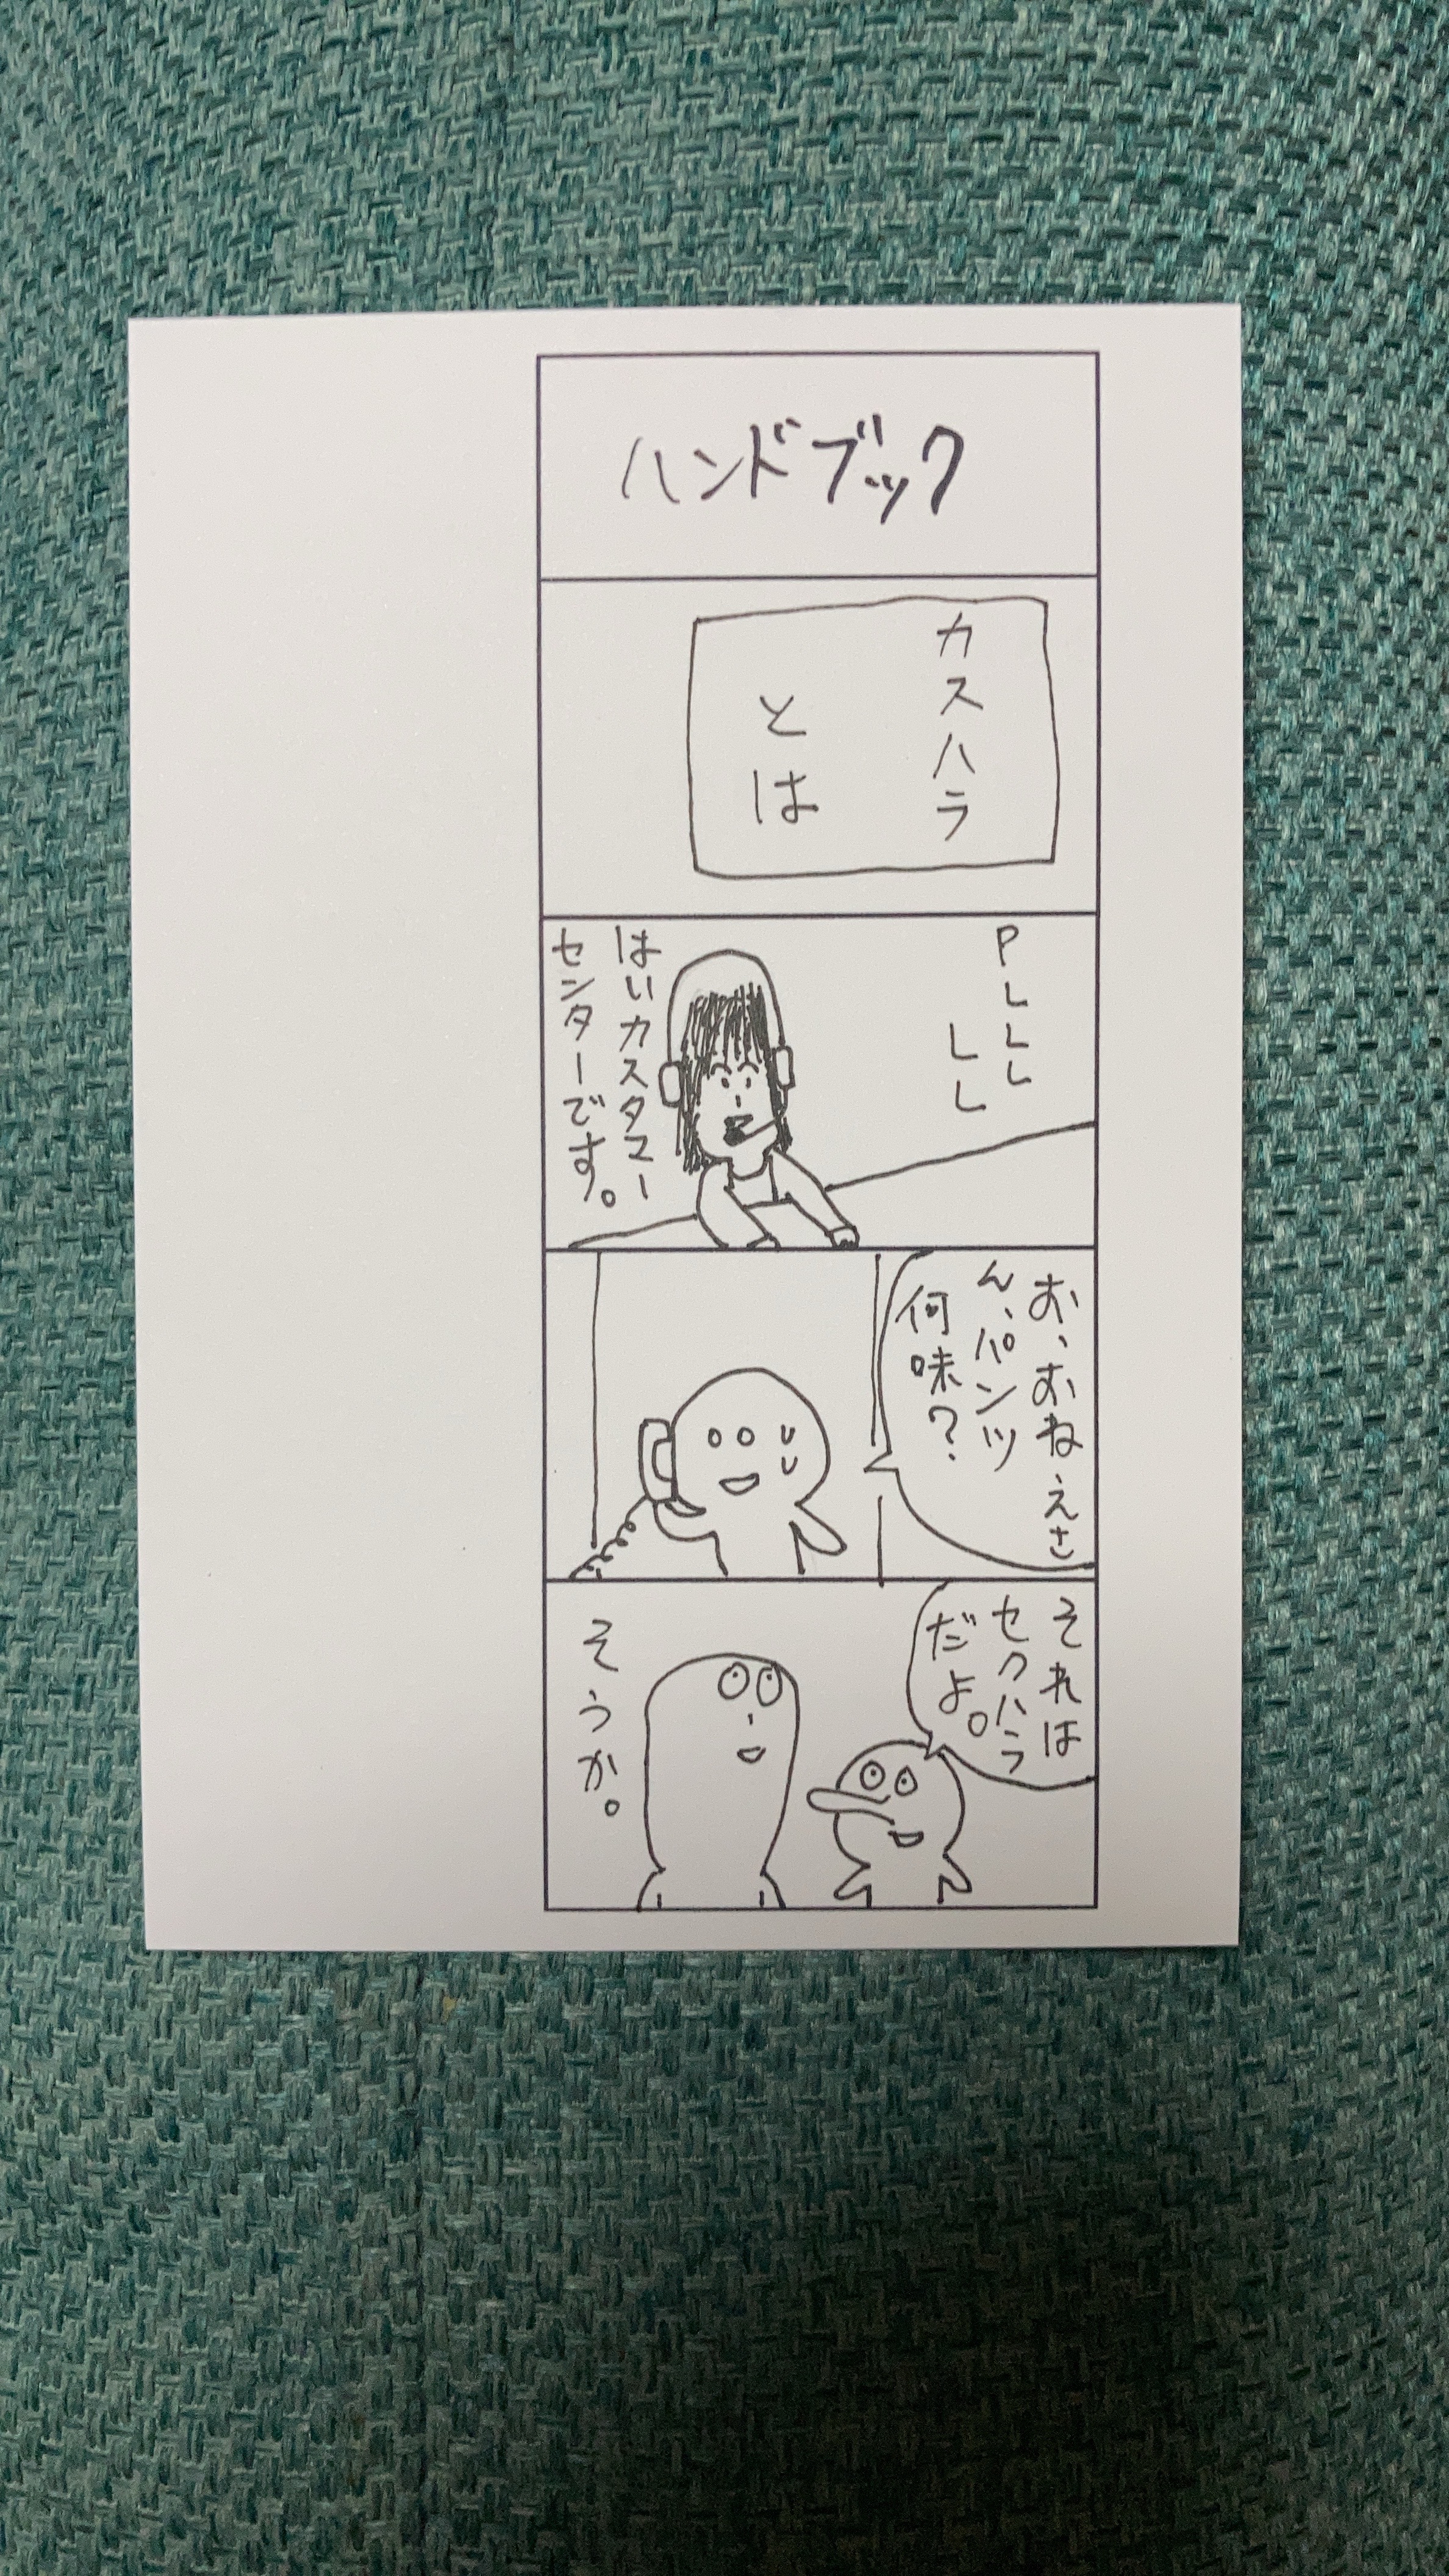 ハンドブック
カスハラ
とは
PLLL
LL
はいカスタマー
センターです。
お、おねえさ
ん、パンツ
何味?
それは
セクハラ
だよ。
そうか。